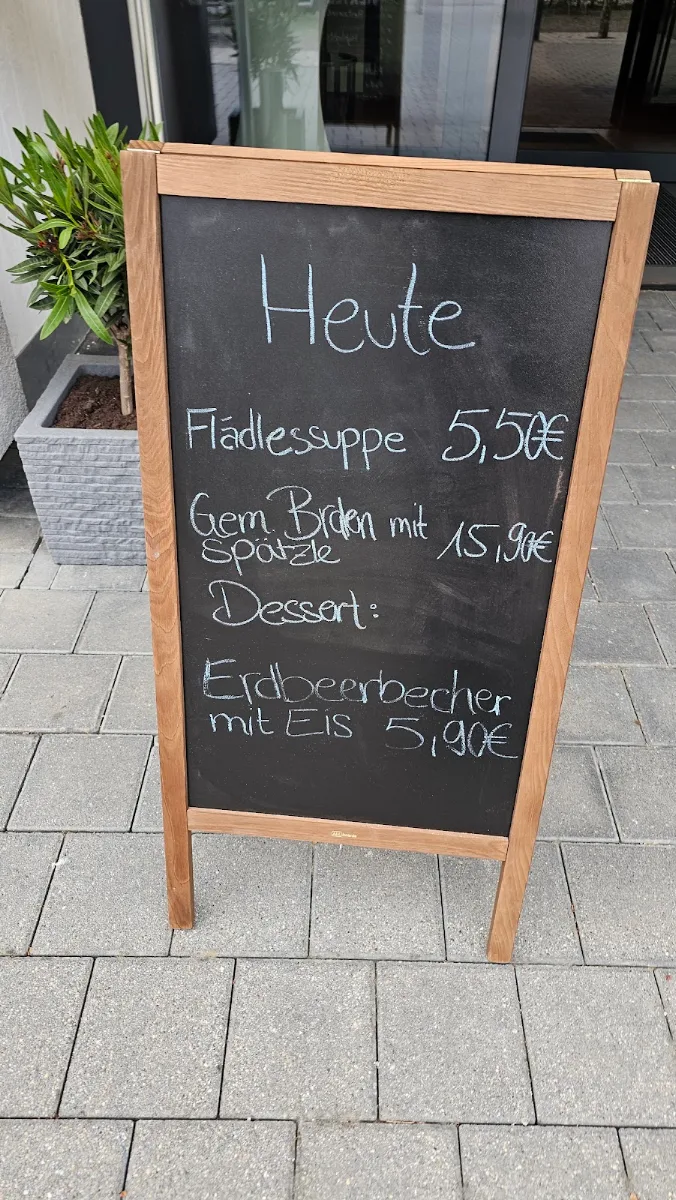 Heute
Flädlessuppe 5,50€
Gem. Brden mit 15,90€
Spätzle
Dessert:
Erdbeerbecher
mit Eis 5,90€